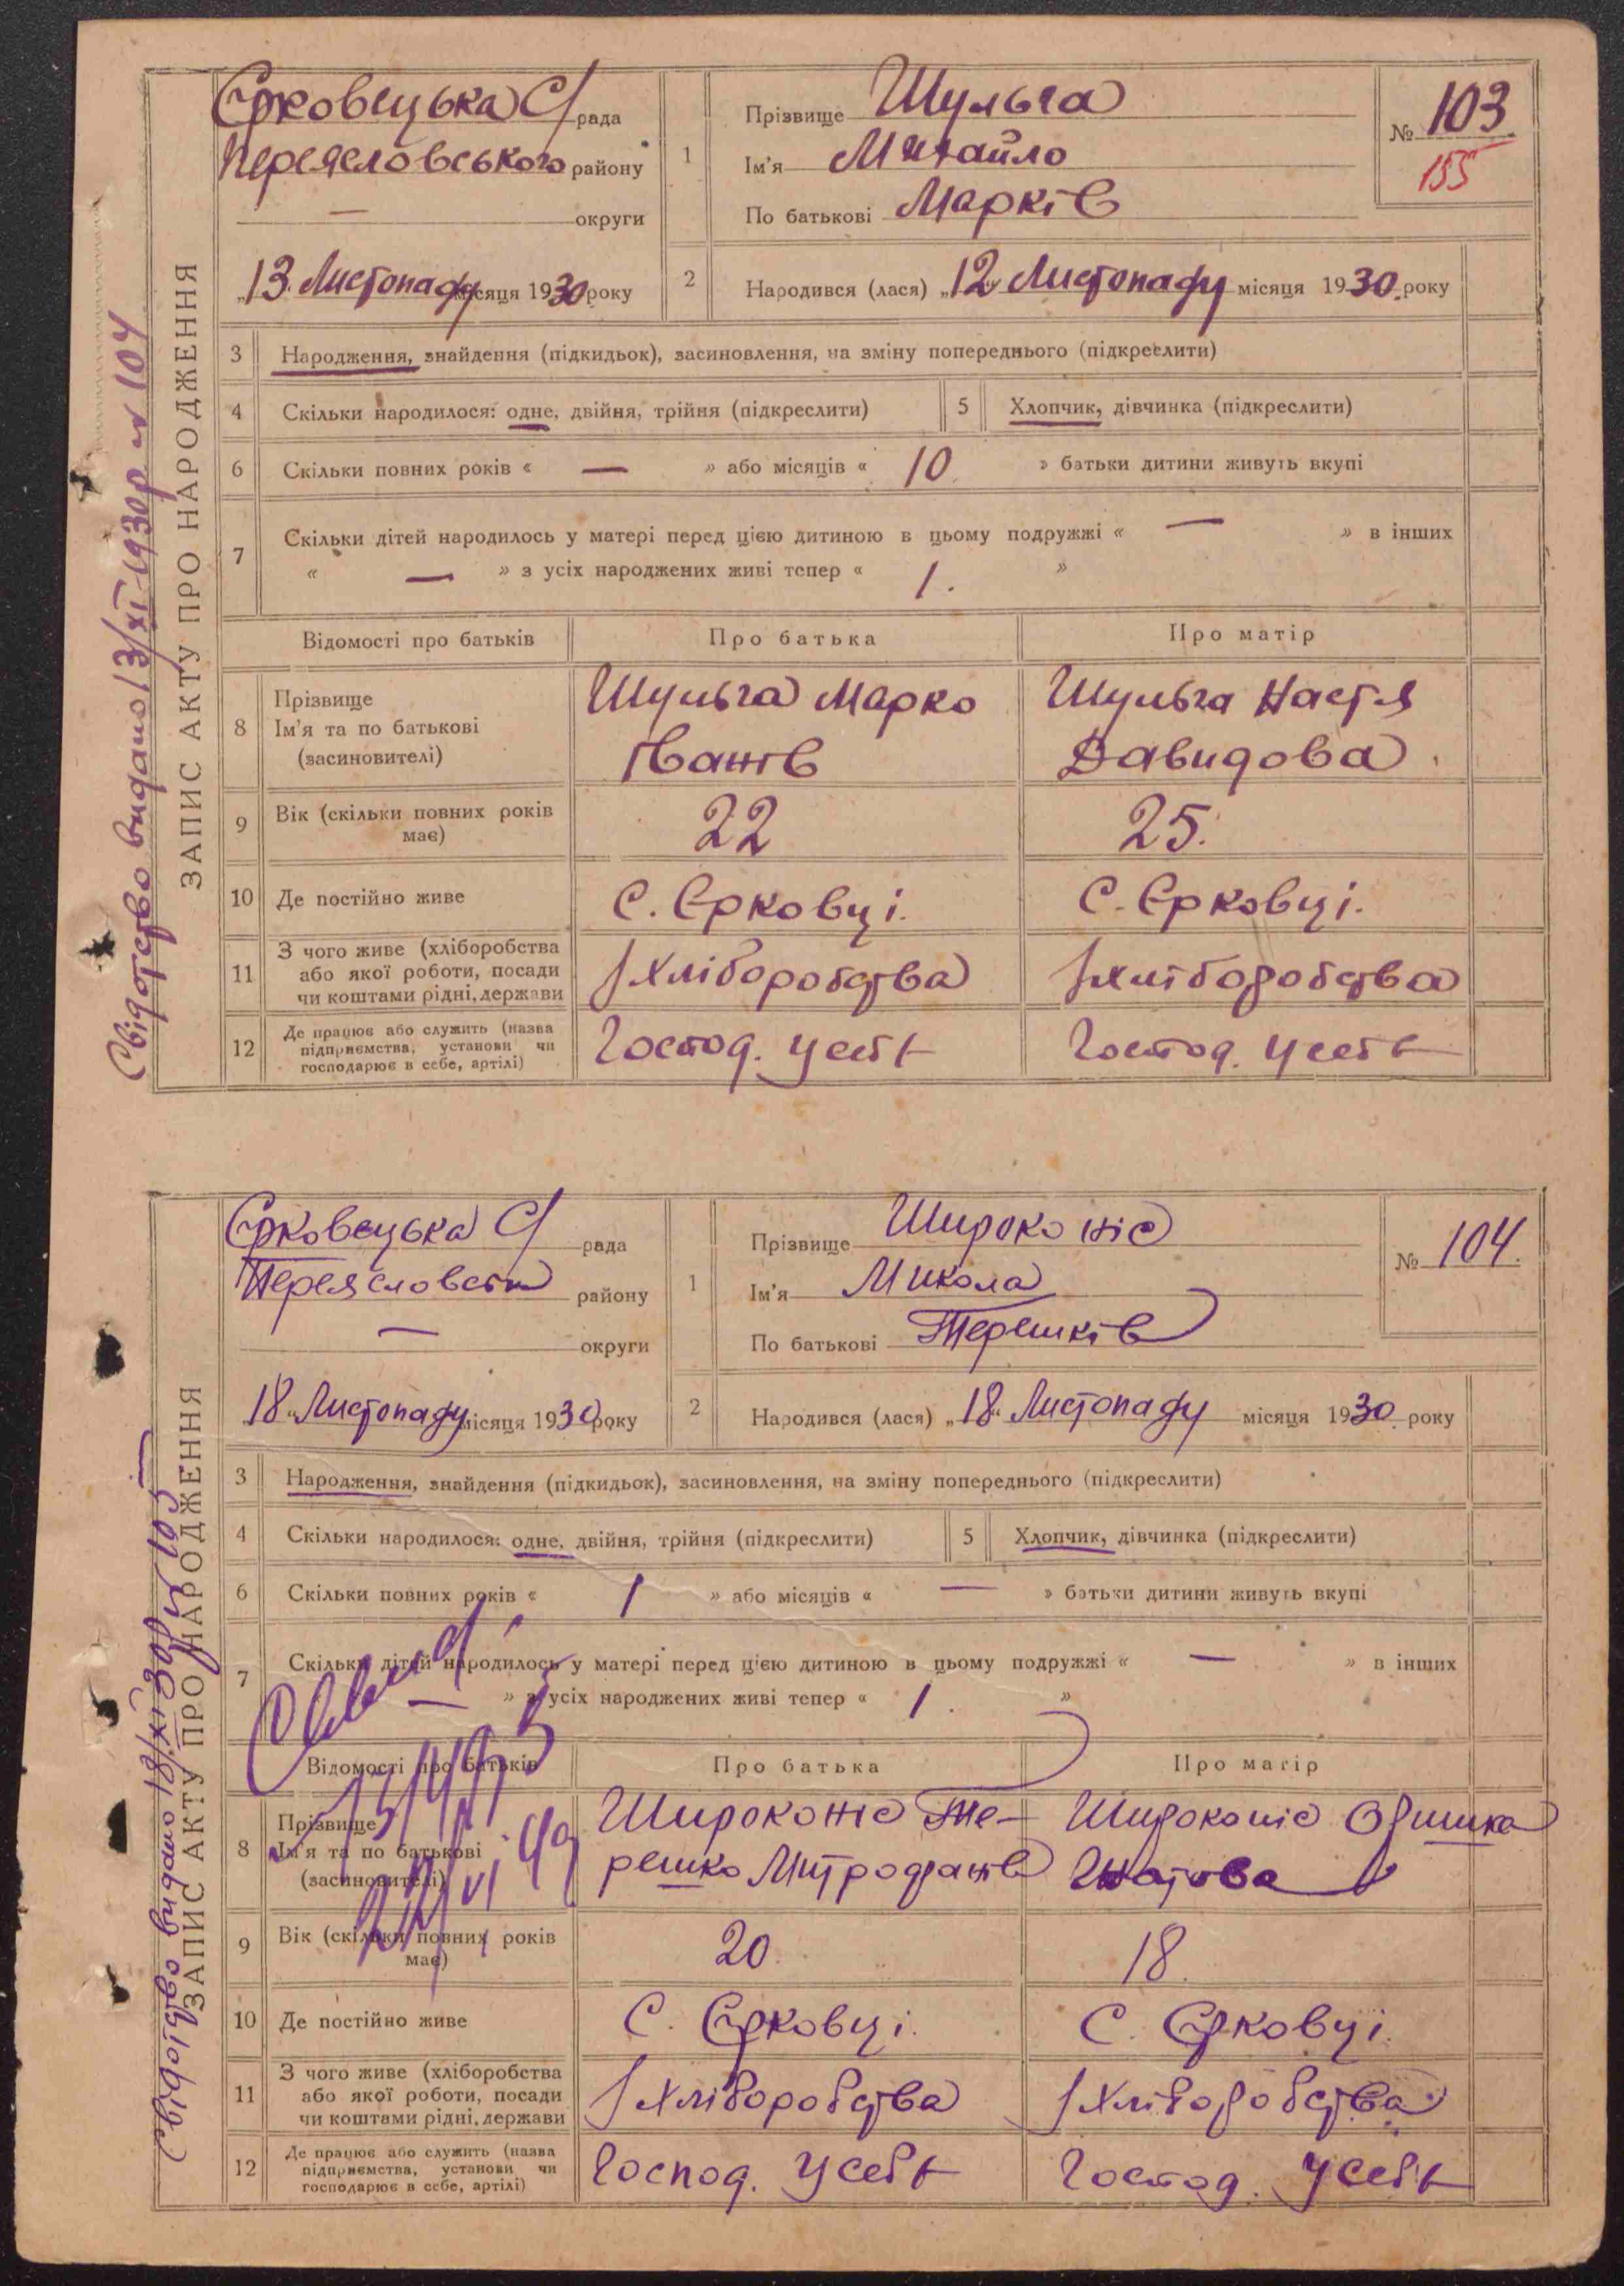 Єрковецька С/рада
Переясловського району
— округи
„13“ Листопаду місяця 1930 року
1
Прізвище Шульга
Ім'я Михайло
По батькові Марків
№ 103.
155
2
Народився (лася) „12“ Листопаду місяця 1930. року
3 Народження, знайдення (підкидьок), засиновлення, на зміну попереднього (підкреслити)
4 Скільки народилося: одне, двійня, трійня (підкреслити)
5 Хлопчик, дівчинка (підкреслити)
6 Скільки повних років « — » або місяців « 10. » батьки дитини живуть вкупі
7 Скільки дітей народилось у матері перед цією дитиною в цьому подружжі « — » в інших
« — » з усіх народжених живі тепер « 1. »
Відомості про батьків
Про батька
Про матір
8 Прізвище
Ім'я та по батькові
(засиновителі)
Шульга Марко
Іванів
Шульга Настя
Давидова
9 Вік (скільки повних років
має)
22
25.
10 Де постійно живе
С. Єрковці.
С. Єрковці.
11 З чого живе (хліборобства
або якої роботи, посади
чи коштами рідні, держави
Хліборобства
Хліборобства
12 Де працює або служить (назва
підприємства, установи чи
господарює в себе, артілі)
Господ. у себе
Господ. у себе
ЗАПИС АКТУ ПРО НАРОДЖЕННЯ
Свідотство видано 13/XI-1930р № 104
Єрковецька С/рада
Переясловськ району
— округи
„18“ Листопаду місяця 1930 року
1
Прізвище Широконіс
Ім'я Микола
По батькові Терешків
№ 104.
2
Народився (лася) „18“ Листопаду місяця 1930. року
3 Народження, знайдення (підкидьок), засиновлення, на зміну попереднього (підкреслити)
4 Скільки народилося: одне, двійня, трійня (підкреслити)
5 Хлопчик, дівчинка (підкреслити)
6 Скільки повних років « 1 » або місяців « — » батьки дитини живуть вкупі
7 Скільки дітей народилось у матері перед цією дитиною в цьому подружжі « — » в інших
« — » з усіх народжених живі тепер « 1. »
Відомості про батьків
Про батька
Про матір
8 Прізвище
Ім'я та по батькові
(засиновителі)
Широконіс Те-
решко Митрофанів
Широконіс Оришка
Гнатова
9 Вік (скільки повних років
має)
20.
18.
10 Де постійно живе
С. Єрковці.
С. Єрковці.
11 З чого живе (хліборобства
або якої роботи, посади
чи коштами рідні, держави
Хліборобства
Хліборобства
12 Де працює або служить (назва
підприємства, установи чи
господарює в себе, артілі)
Господ. у себе
Господ. у себе
ЗАПИС АКТУ ПРО НАРОДЖЕННЯ
Свідотство видано 18/XI-30р № 105